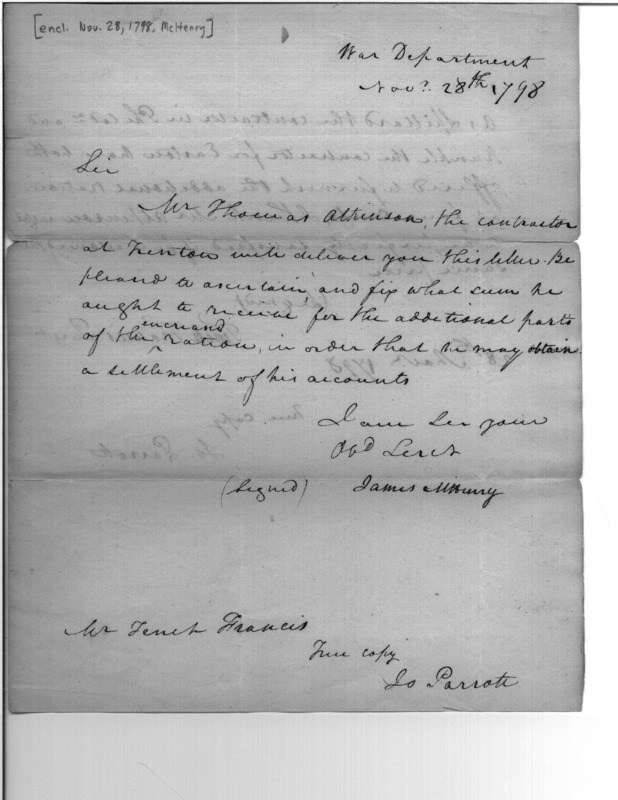 [encl. Nov. 28, 1798, McHenry]
War Department
Novr. 28th 1798
Sir
Mr Thomas Attkinson, the contractor
at Trenton will deliver you this letter. Be
pleased to ascertain and fix what sum he
aught to receive for the additional parts
increased
of the ration, in order that he may obtain
a settlement of his accounts
I am Ser your
Obd Servt
(Signed) James McHenry
Mr Tench Francis
True copy
Jo Parrott